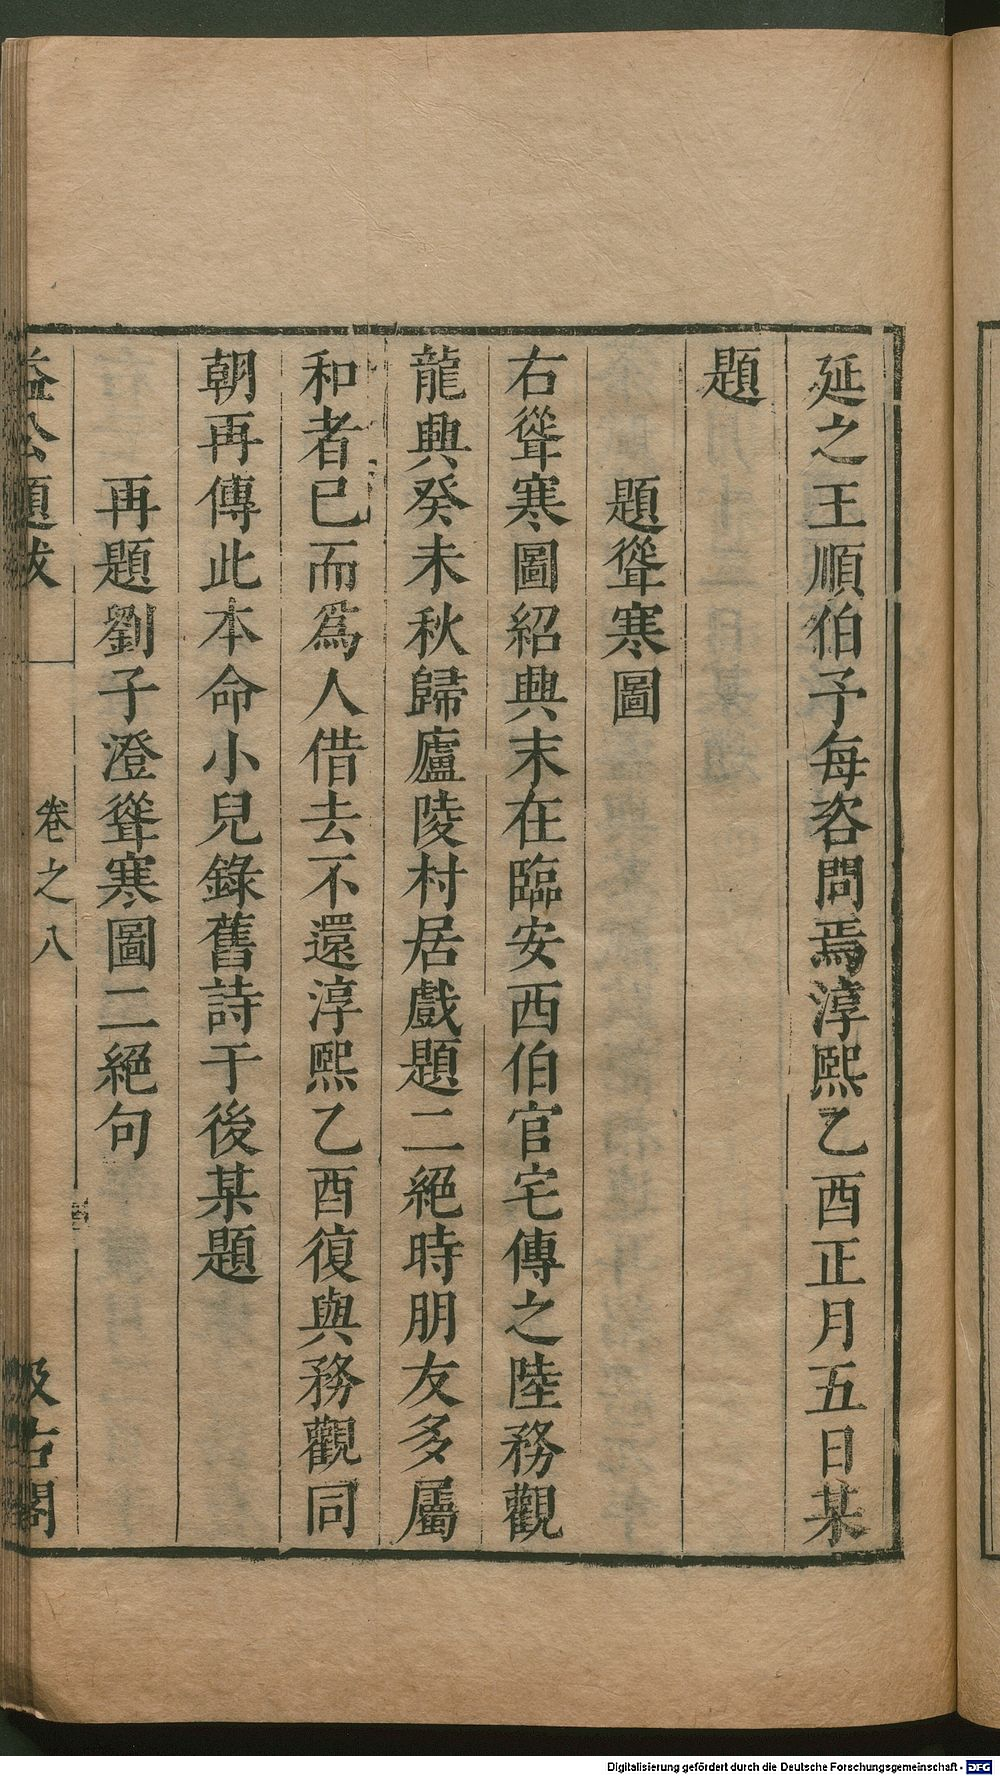 延之王順伯予每咨問焉淳熙乙酉正月五日某
題
題聳寒圖
右聳寒圖紹興末在臨安西伯官宅傳之陸務觀
龍興癸未秋歸廬陵村居戲題二絕時朋友多屬
和者已而爲人借去不還淳熙乙酉復與務觀同
朝再傳此本命小兒錄舊詩于後某題
再題劉子澄聳寒圖二絕句
益公題跋
卷之八
汲古閣
Digitalisierung gefördert durch die Deutsche Forschungsgemeinschaft - DFG